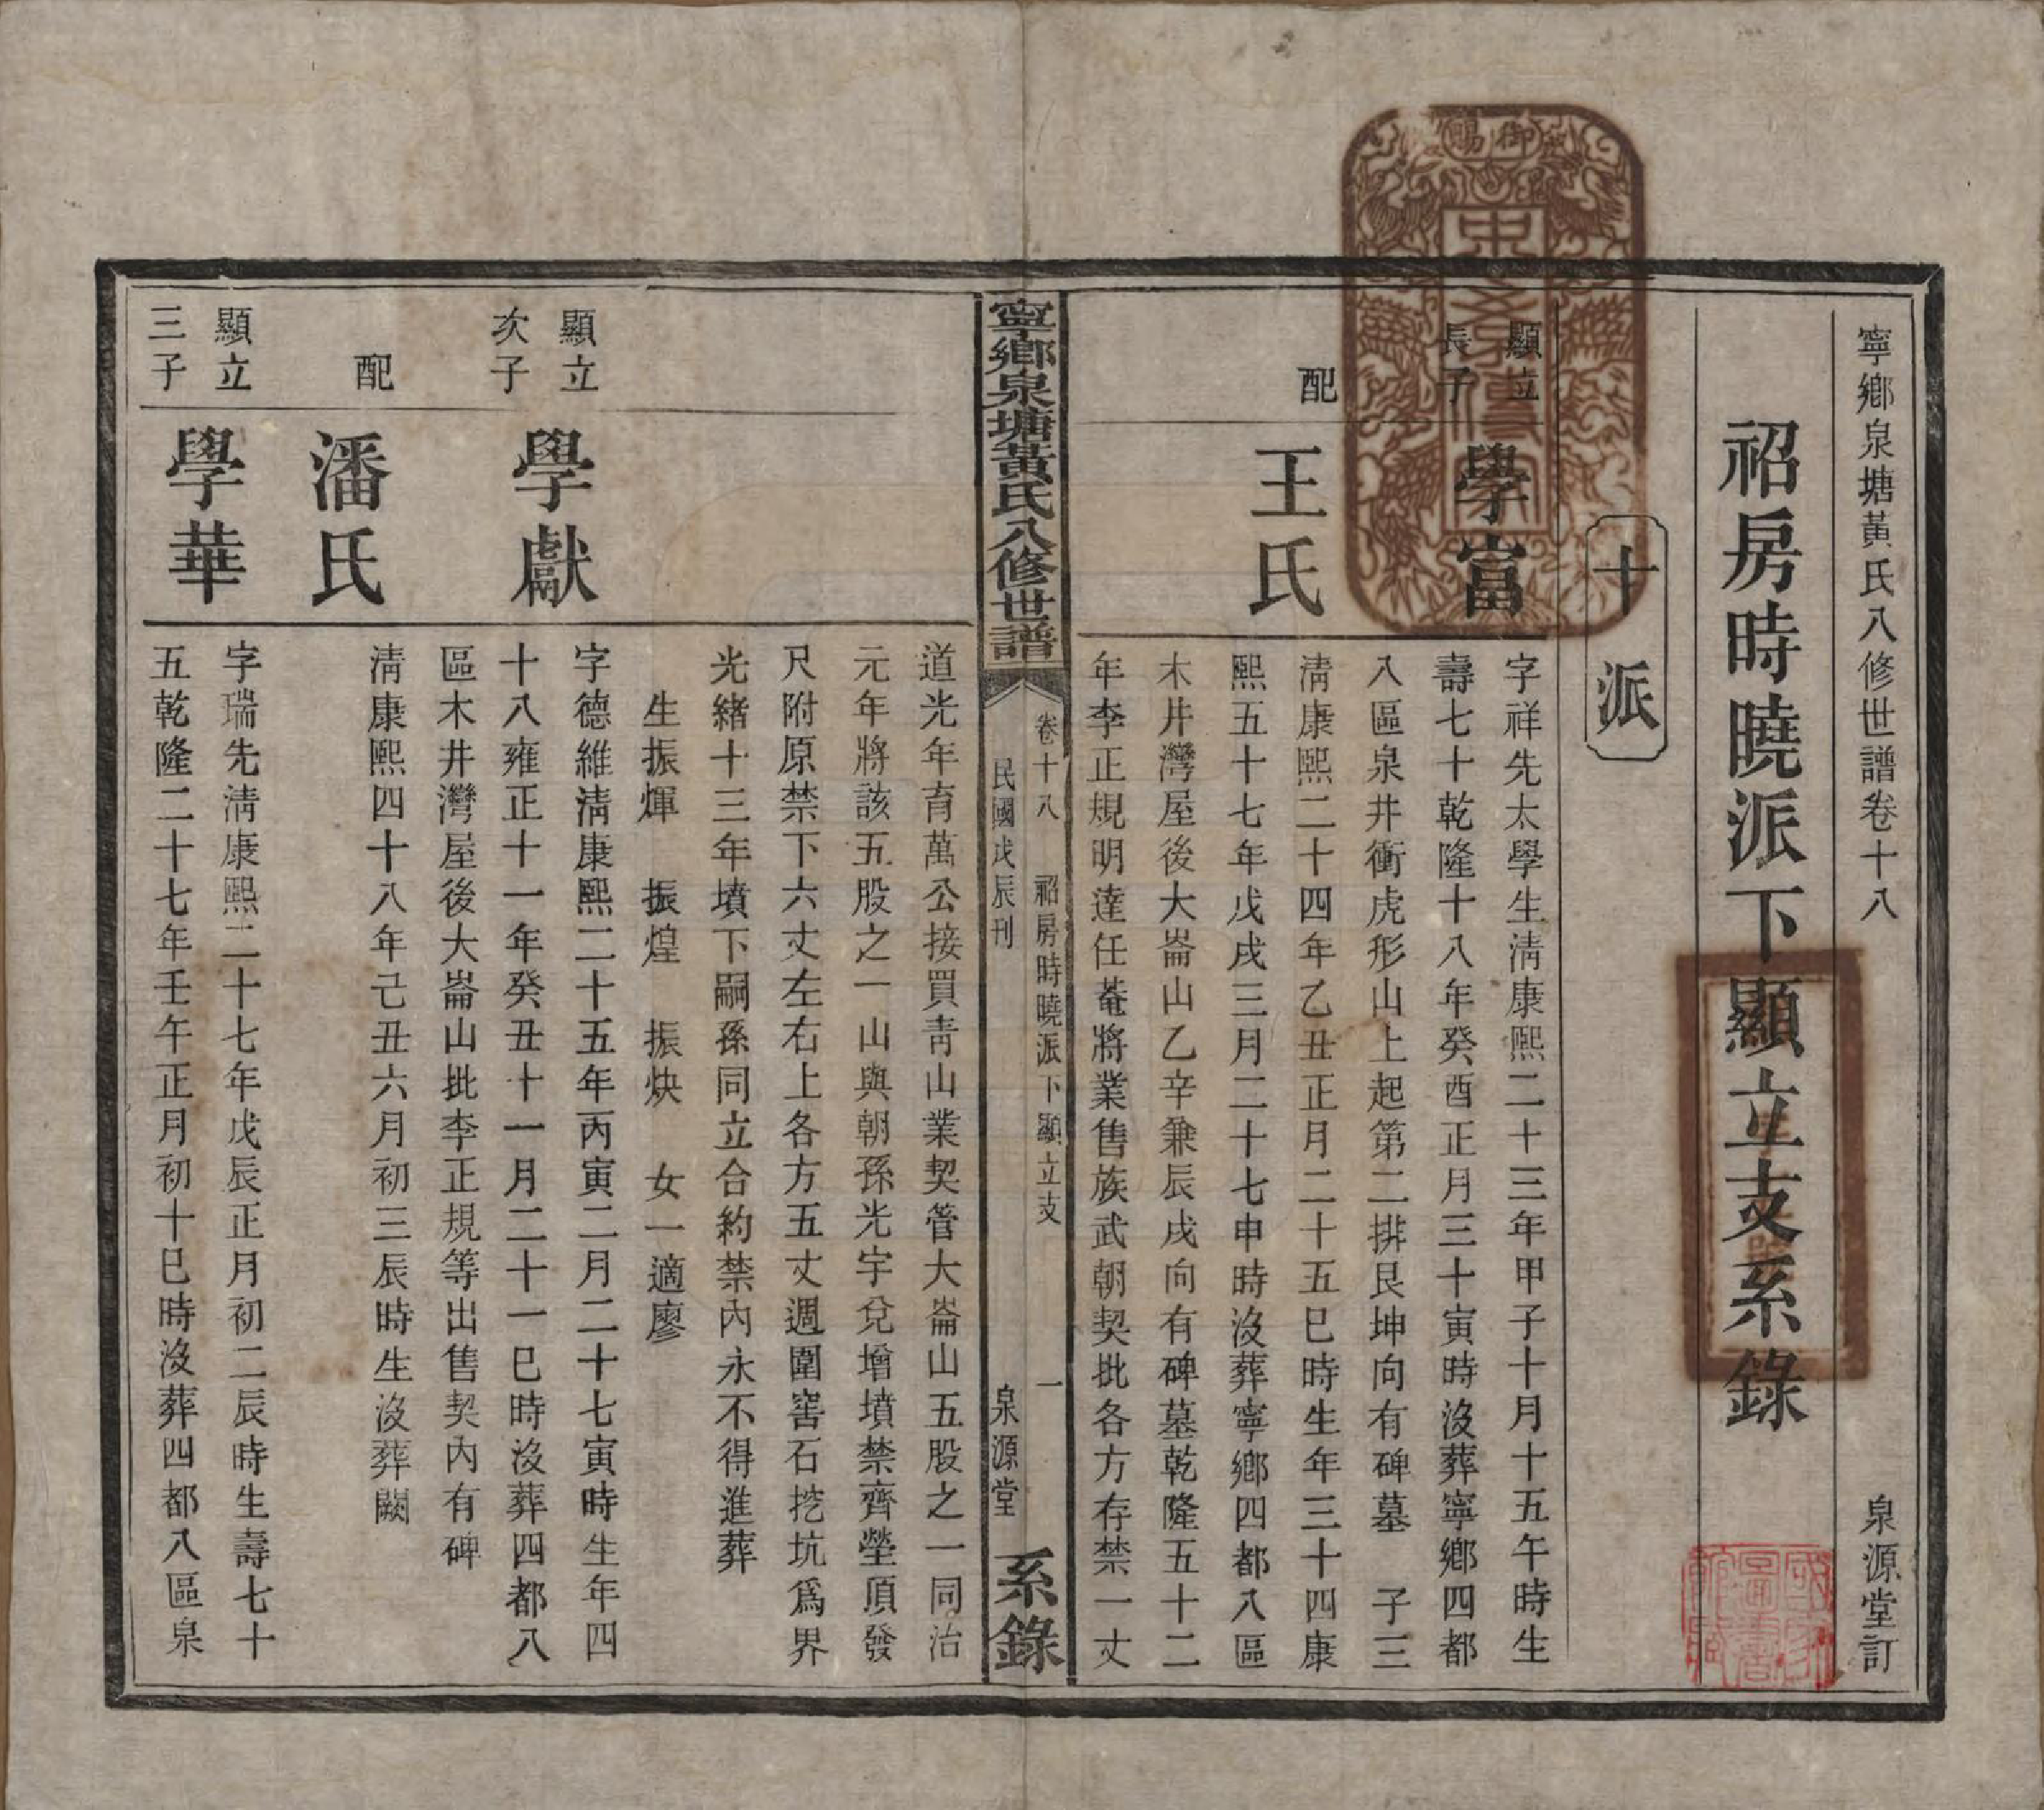 寧鄉泉塘黃氏八修世譜卷十八 泉源堂訂
祒房時曉派下顯立支系錄
十派
顯立
長子
學富
字祥先太學生淸康熙二十三年甲子十月十五午時生
壽七十乾隆十八年癸酉正月三十寅時沒葬寧鄉四都
八區泉井衝虎形山上起第二排艮坤向有碑墓 子三
配
王氏
淸康熙二十四年乙丑正月二十五巳時生年三十四康
熙五十七年戊戌三月二十七申時沒葬寧鄉四都八區
木井灣屋後大崙山乙辛兼辰戌向有碑墓乾隆五十二
年李正規明達任菴將業售族武朝契批各方存禁一丈
寧鄉泉塘黃氏八修世譜
卷十八 祒房時曉派下顯立支 一
民國戊辰刊 泉源堂
系錄
道光年育萬公接買靑山業契管大崙山五股之一同治
元年將該五股之一山與朝孫光宇兌增墳禁齊塋頂發
尺附原禁下六丈左右上各方五丈週圍窖石挖坑爲界
光緒十三年墳下嗣孫同立合約禁內永不得進葬
生振煇 振煌 振炔 女一適廖
顯立
次子
學獻
字德維淸康熙二十五年丙寅二月二十七寅時生年四
十八雍正十一年癸丑十一月二十一巳時沒葬四都八
區木井灣屋後大崙山批李正規等出售契內有碑
配
潘氏
淸康熙四十八年己丑六月初三辰時生沒葬闕
顯立
三子
學華
字瑞先淸康熙二十七年戊辰正月初二辰時生壽七十
五乾隆二十七年壬午正月初十巳時沒葬四都八區泉